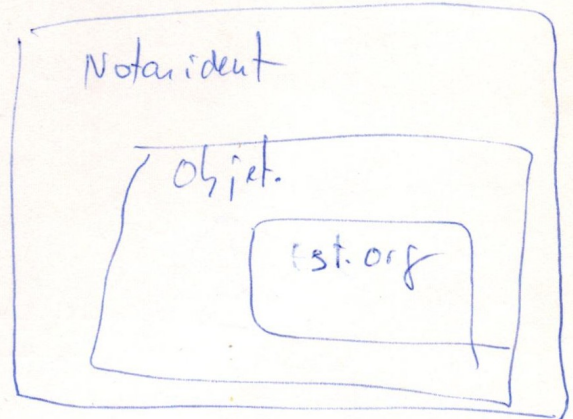 Notarident
Objet.
est.org